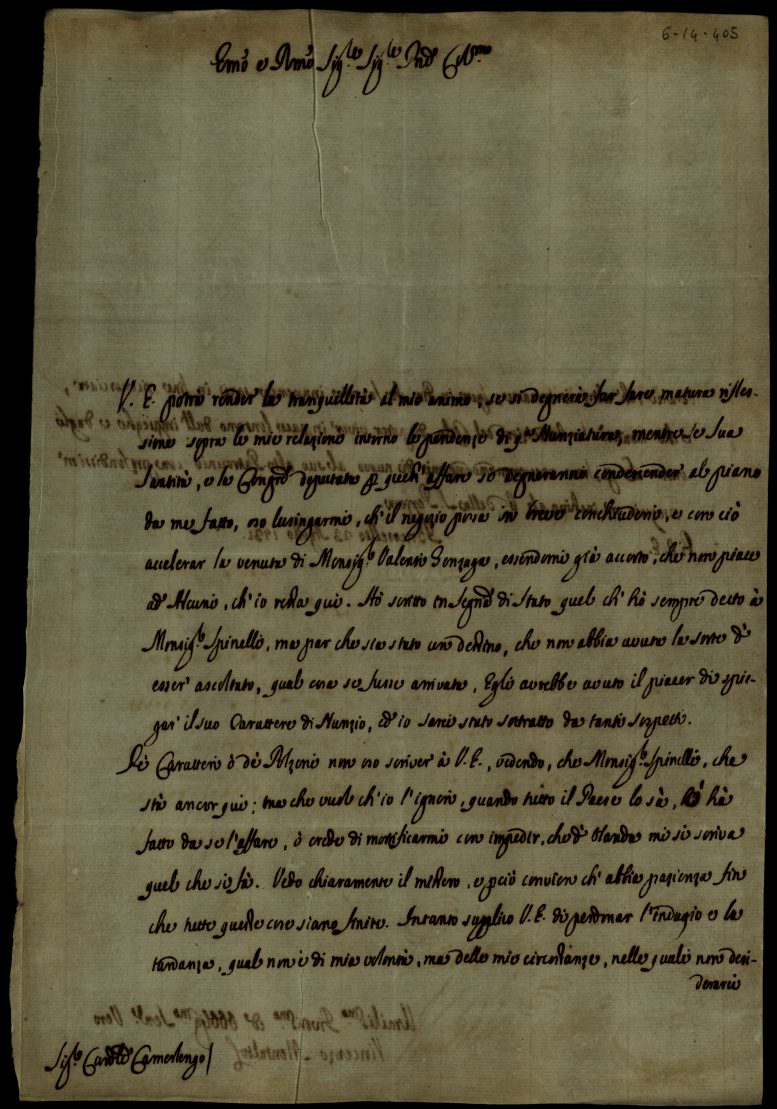 6-14-405
Emo e Rmo Sig.re Sig.re Pnẽ Col.mo
V. E. potrà render la tranquillità al mio animo, se si degnerà far fare matura rifles-
sione sopra le mie relazione intorno le pendenze di q.ta Nunziatura, mentre se Sua
Santità, e la Congñe deputata p quest'affare si degneranno condescender al piano
da me fatto, oso lusingarmi, ch'il negozio possa in breve conchiudersi, e con ciò
accelerar la venuta di Monsig.r Valenti Gonzaga, essendomi già accorto, che non piace
ad Alcuni, ch'io resta qui. Hò scritto in Segriã di Stato quel ch'hò sempre detto à
Monsig.r Spinelli, ma par che sia stato un destino, che non abbia avuto la sorte d'
esser' ascoltato, qual cosa se fusse arrivata, Egli avrebbe avuto il piacer di spie-
gar' il suo Carattere di Nunzio, ed' io sarei stato sottratto da tanti sospetti.
De Caratteri ò dè Polzoni non oso scriver à V. E., vedendo, che Monsig.r Spinelli, che
stà ancor qui; ma che vuol ch'io l'ignori, quando tutto il Paese lo sà, hà
fatto da se l'affare, ò crede di mortificarmi con impedir, che d'Olanda mi si scriva
quel che si fà. Vedo chiaramente il mistero, e pciò convien ch'abbia pazienza fin
che tutte queste cose siano finite. Intanto supplico V. E. di perdonar l'indugio e la
tardanza, qual non è di mia volontà, ma delle mie circostanze, nelle quali non desi-
derarei
Sig.r Cardle Camerlengo/